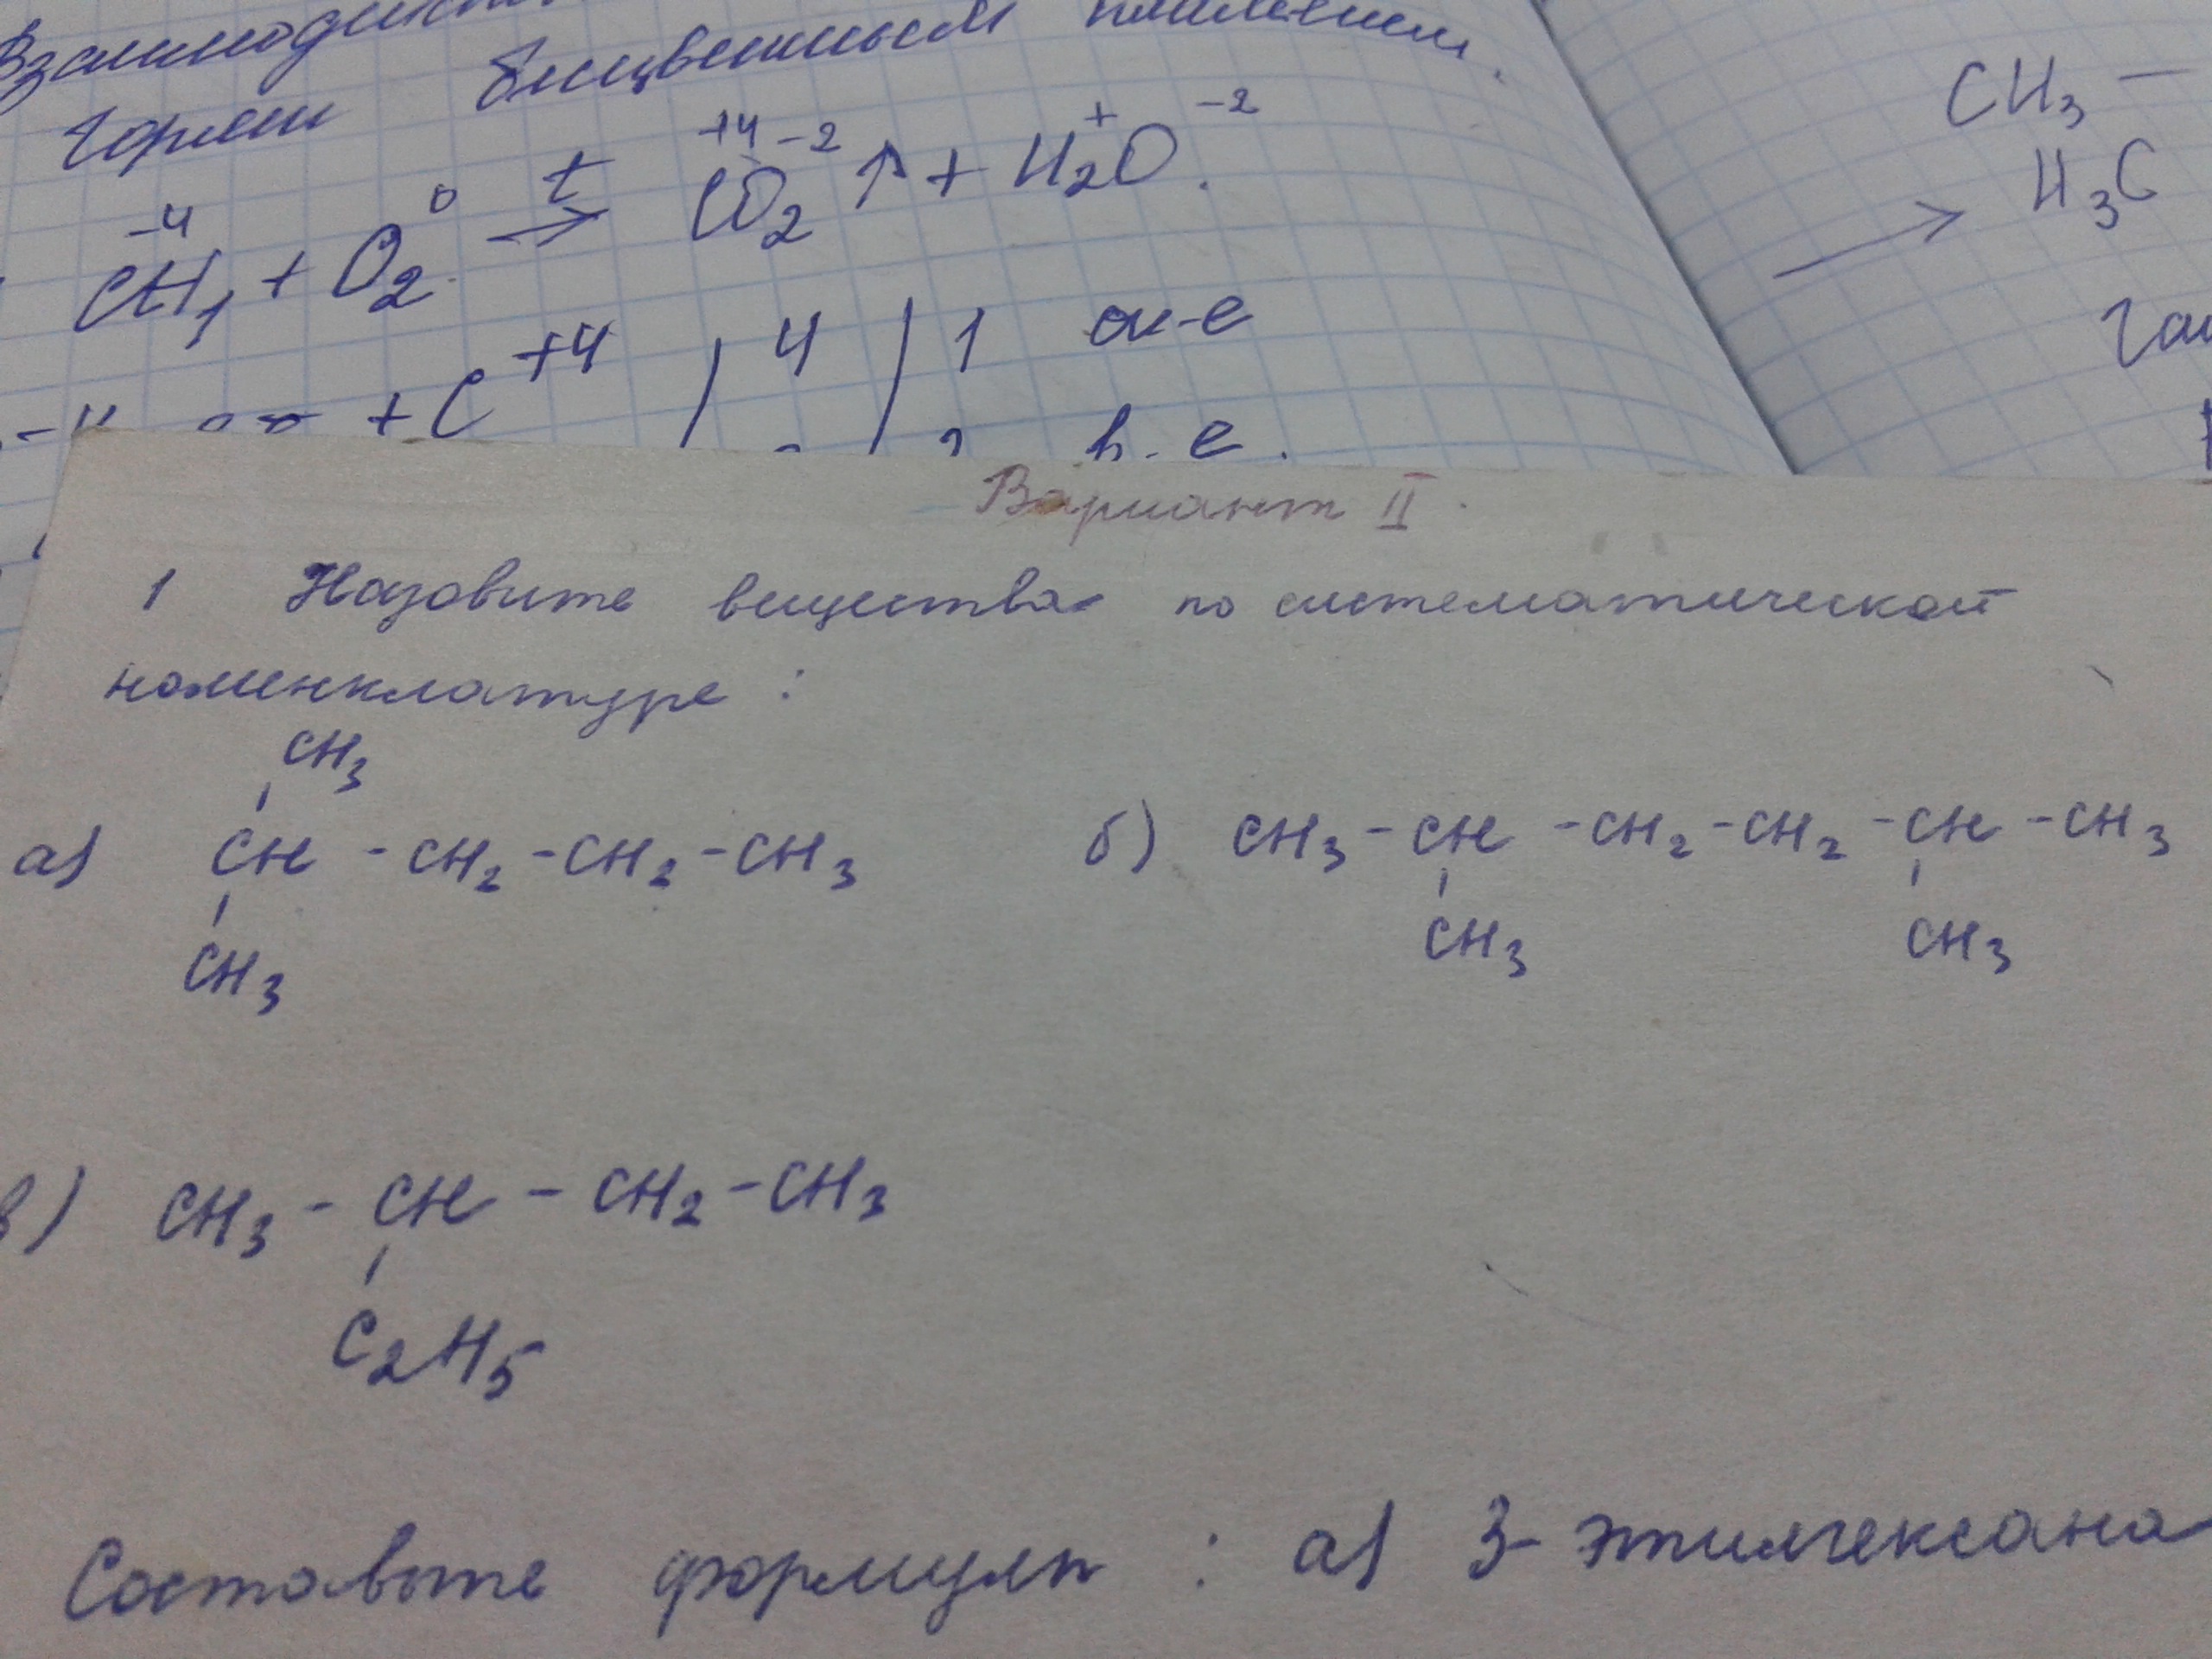 горит бесцветным пламенем.
-4 0 t +4 -2 + -2
CH4 + O2 → CO2 ↑ + H2O.
+C +4 | 4 | 1 ок-е
в. е.
CH3 —
→ H3C
Вариант II.
1 Назовите вещества по систематической
номенклатуре :
CH3
а) CH - CH2 - CH2 - CH3
CH3
б) CH3 - CH - CH2 - CH2 - CH - CH3
CH3 CH3
в) CH3 - CH - CH2 - CH3
C2H5
Составьте формулы : а) 3-этилгексана